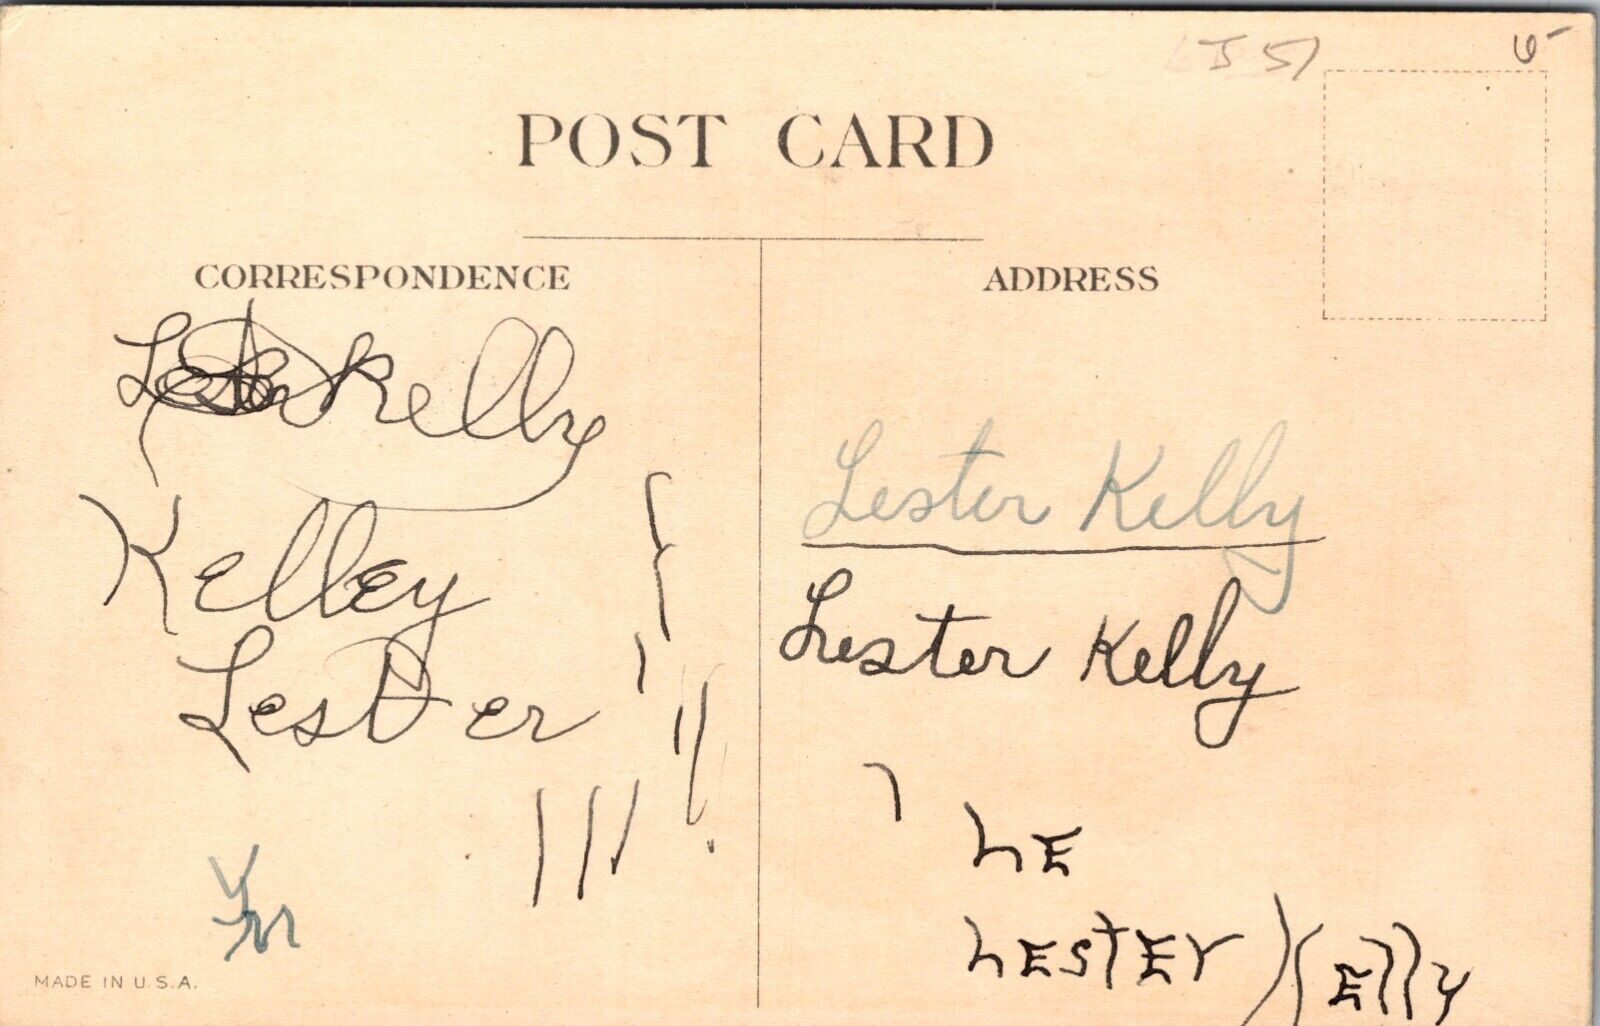 51
6-
POST CARD
CORRESPONDENCE
ADDRESS
Kelly
Kelley
Lester
Lester Kelly
Lester Kelly
LE
LESTEr KElly
MADE IN U.S.A.